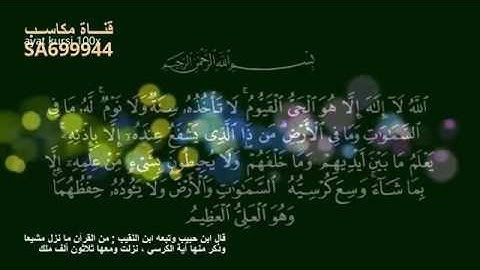 قناة مكاسب
ayat kursi 100x
SA699944
بِسْمِ ٱللَّهِ ٱلرَّحْمَٰنِ ٱلرَّحِيمِ
ٱللَّهُ لَآ إِلَٰهَ إِلَّا هُوَ ٱلْحَىُّ ٱلْقَيُّومُ ۚ لَا تَأْخُذُهُۥ سِنَةٌ وَلَا نَوْمٌ ۚ لَّهُۥ مَا فِى
ٱلسَّمَٰوَٰتِ وَمَا فِى ٱلْأَرْضِ ۗ مَن ذَا ٱلَّذِى يَشْفَعُ عِندَهُۥٓ إِلَّا بِإِذْنِهِۦ ۚ
يَعْلَمُ مَا بَيْنَ أَيْدِيهِمْ وَمَا خَلْفَهُمْ ۖ وَلَا يُحِيطُونَ بِشَىْءٍ مِّنْ عِلْمِهِۦٓ إِلَّا
بِمَا شَآءَ ۚ وَسِعَ كُرْسِيُّهُ ٱلسَّمَٰوَٰتِ وَٱلْأَرْضَ ۖ وَلَا يَـُٔودُهُۥ حِفْظُهُمَا ۚ
وَهُوَ ٱلْعَلِىُّ ٱلْعَظِيمُ
قال ابن حبيب وتبعه ابن النقيب ; من القرآن ما نزل مشيعا
وذكر منها آية الكرسي ، نزلت ومعها ثلاثون الف ملك